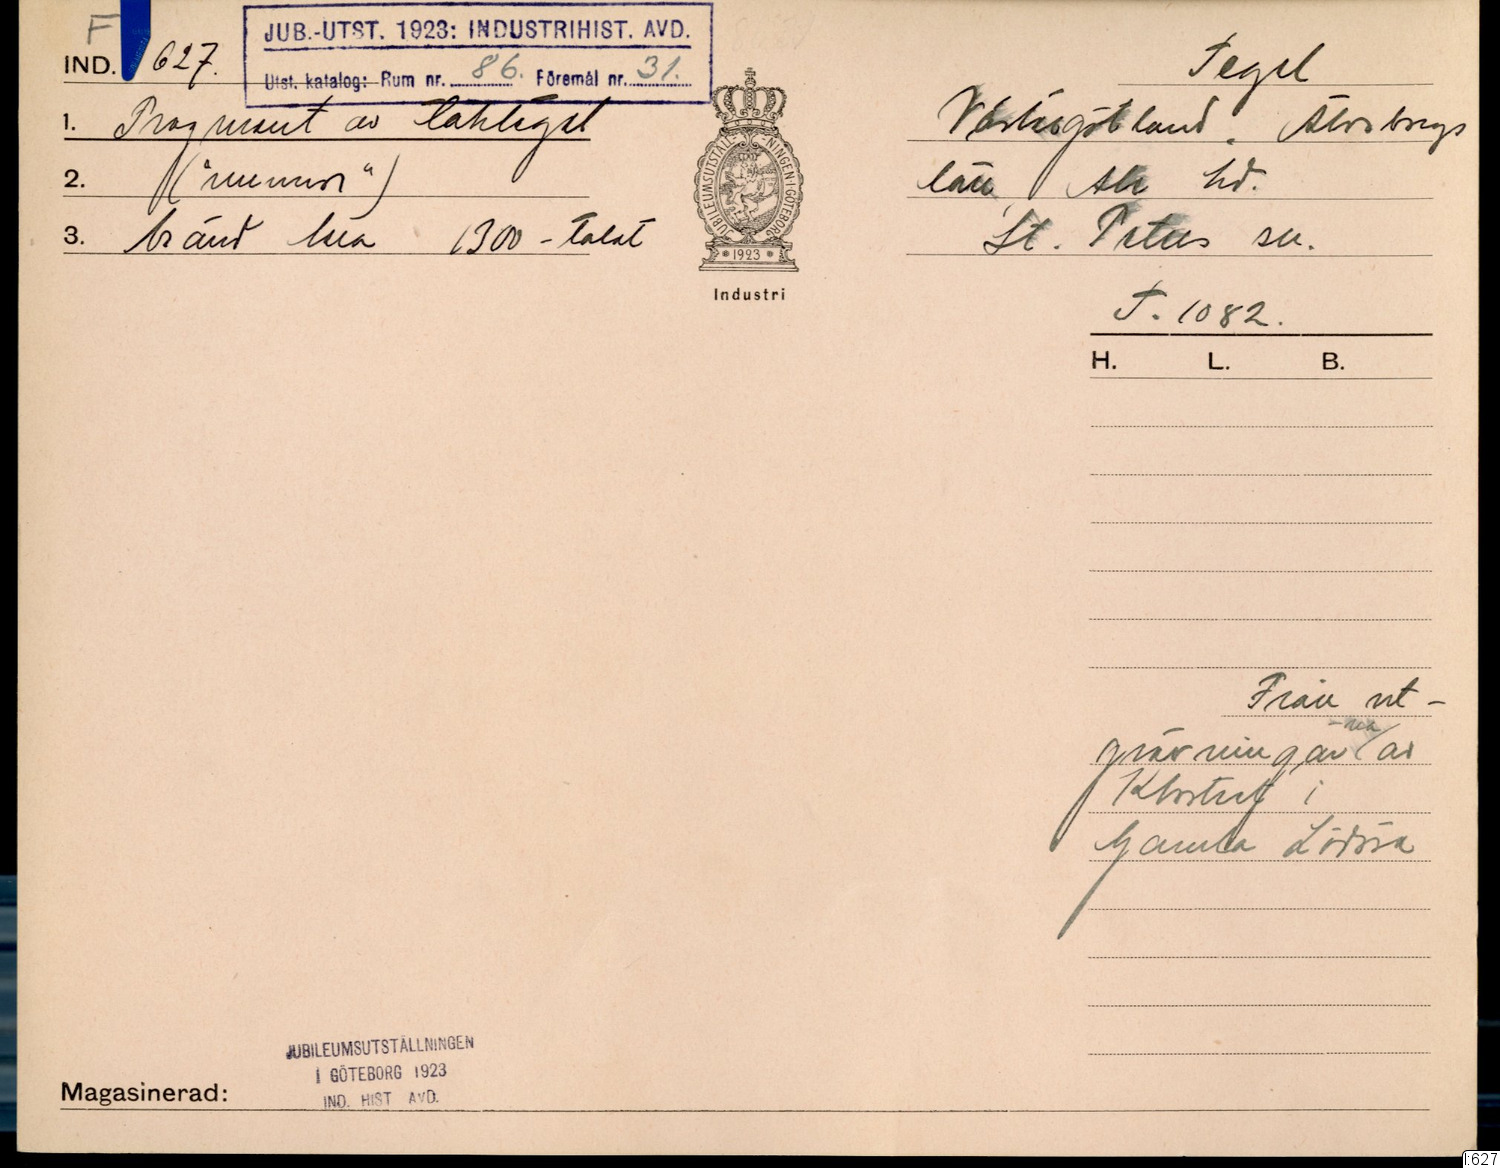 F
IND. 627.
JUB.-UTST. 1923: INDUSTRIHIST. AVD.
Utst. katalog: Rum nr. 86. Föremål nr. 31.
1. Fragment av taktegel
2. ("munnor")
3. bränd lera 1300-talet
JUBILEUMSUTSTÄLLNINGEN·I·GÖTEBORG
1923
Industri
Tegel
Västergötland. Älvsborgs
län Ale hd.
St. Peters sn.
T. 1082.
H. L. B.
Från ut-
-na
grävningar av
Klostret i
Gamla Lödöse
JUBILEUMSUTSTÄLLNINGEN
I GÖTEBORG 1923
IND. HIST AVD.
Magasinerad:
I:627